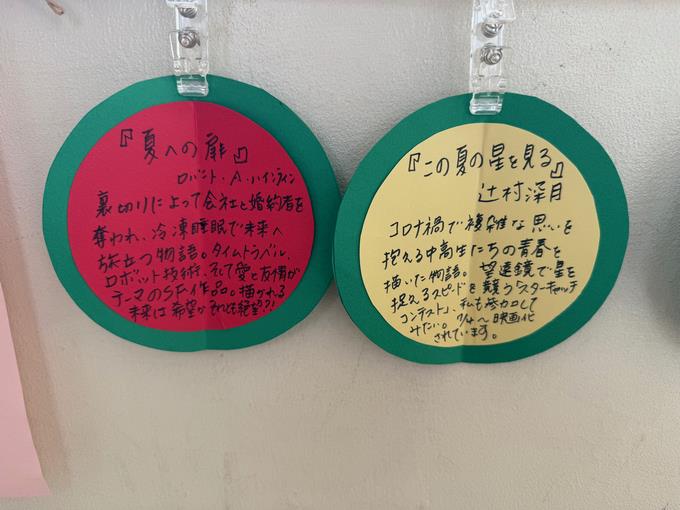 『夏への扉』
ロバート・A・ハインライン
裏切りによって会社と婚約者を
奪われ、冷凍睡眠で未来へ
旅立つ物語。タイムトラベル、
ロボット技術、そして愛と友情が
テーマのSF作品。描かれる
未来は希望かそれとも絶望?!
『この夏の星を見る』
辻村深月
コロナ禍で複雑な思いを
抱える中高生たちの青春を
描いた物語。望遠鏡で星を
捉えるスピードを競う「スターキャッチ
コンテスト」、私も参加して
みたい。7/4〜映画化
されています。